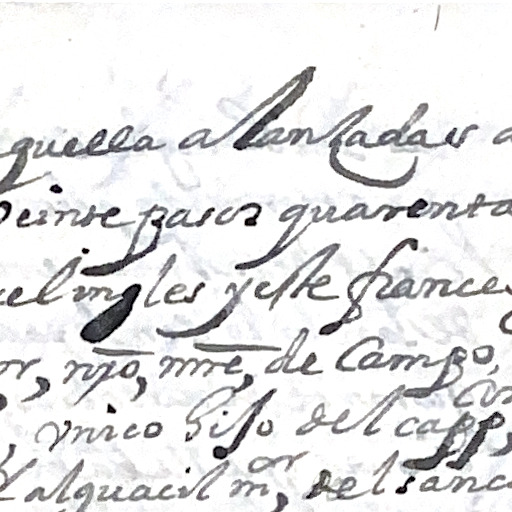 quella alanzadas a
Veinte pasos quarenta
el ingles y este frances
or, nro, mre, de Campo,
vnico hijo del capp,
alguacil mor, del sanc